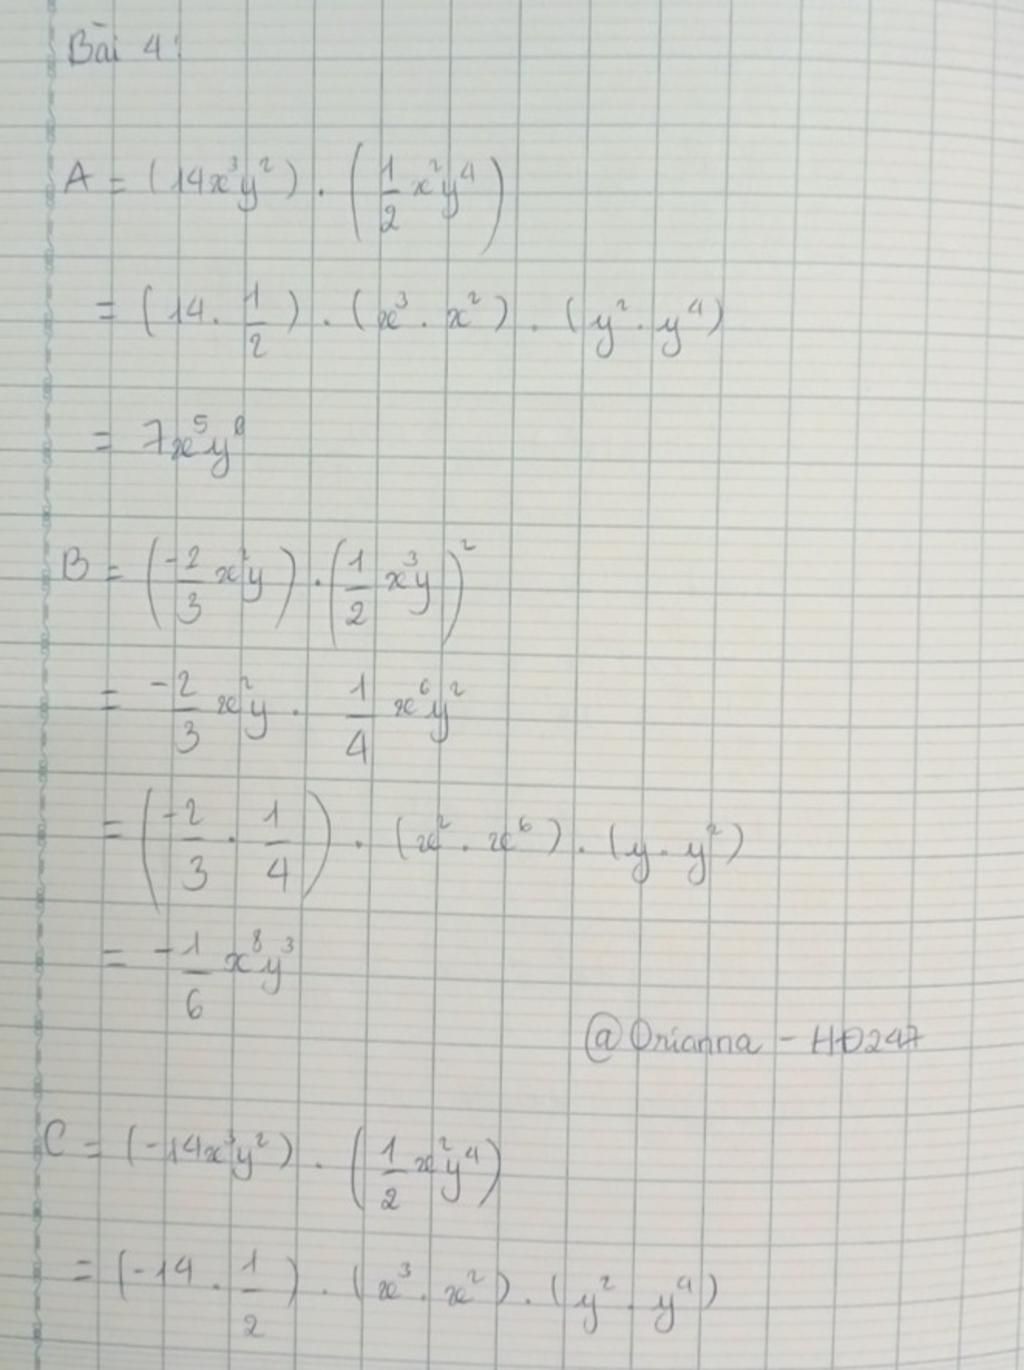 Bài 4:
A = (14x³y²) . (1/2 x²y⁴)
= (14 . 1/2) . (x³ . x²) . (y² . y⁴)
= 7x⁵y⁶
B = (-2/3 x²y) . (1/2 x³y)²
= -2/3 x²y . 1/4 x⁶y²
= (-2/3 . 1/4) . (x² . x⁶) . (y . y²)
= -1/6 x⁸y³
@Orianna - HĐ247
C = (-14x³y²) . (1/2 x²y⁴)
= (-14 . 1/2) . (x³ . x²) . (y² . y⁴)